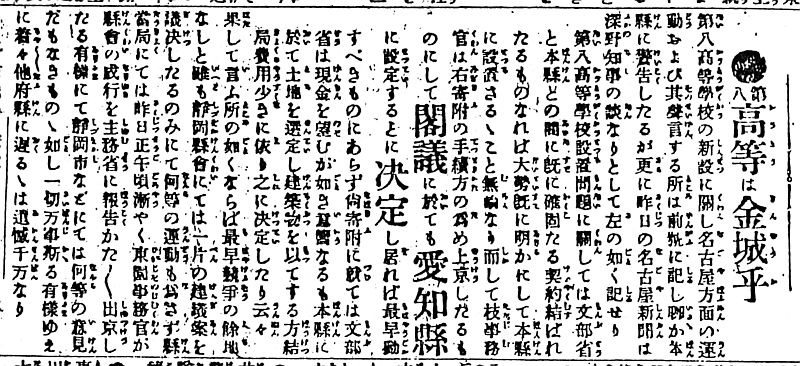 第八高等は金城乎
第八高等學校の新設に關し名古屋方面の運
動および其聲言する所は前號に記し聊か本
縣に警告したるが更に昨日の名古屋新聞は
深野知事の談なりとして左の如く記せり
第八高等學校設置問題に關しては文部省
と本縣との間に既に確固たる契約結ばれ
たるものなれば大勢既に明かにして本縣
に設置さるゝこと無論なり而して枝事務
官は右寄附の手續方の爲め上京したるも
のにして閣議に於ても愛知縣
に設定するとに決定し居れば最早動
すべきものにあらず尚寄附に就ては文部
省は現金を望むが如き意嚮なるも本縣に
於て土地を選定し建築物を以てする方結
局費用少きに依り之に決定したり云々
果して言ふ所の如くならば最早競爭の餘地
なしと雖も靜岡縣會にては一片の建議案を
議決したるのみにて何等の運動も爲さず縣
當局にては昨日正午頃漸やく東園事務官が
縣會の成行を主務省に報告かた〲出京し
たる有樣にて靜岡市などにては何等の意見
だもなきものゝ如し一切万事斯る有樣ゆえ
に着々他府縣に遲るゝは遺憾千万なり